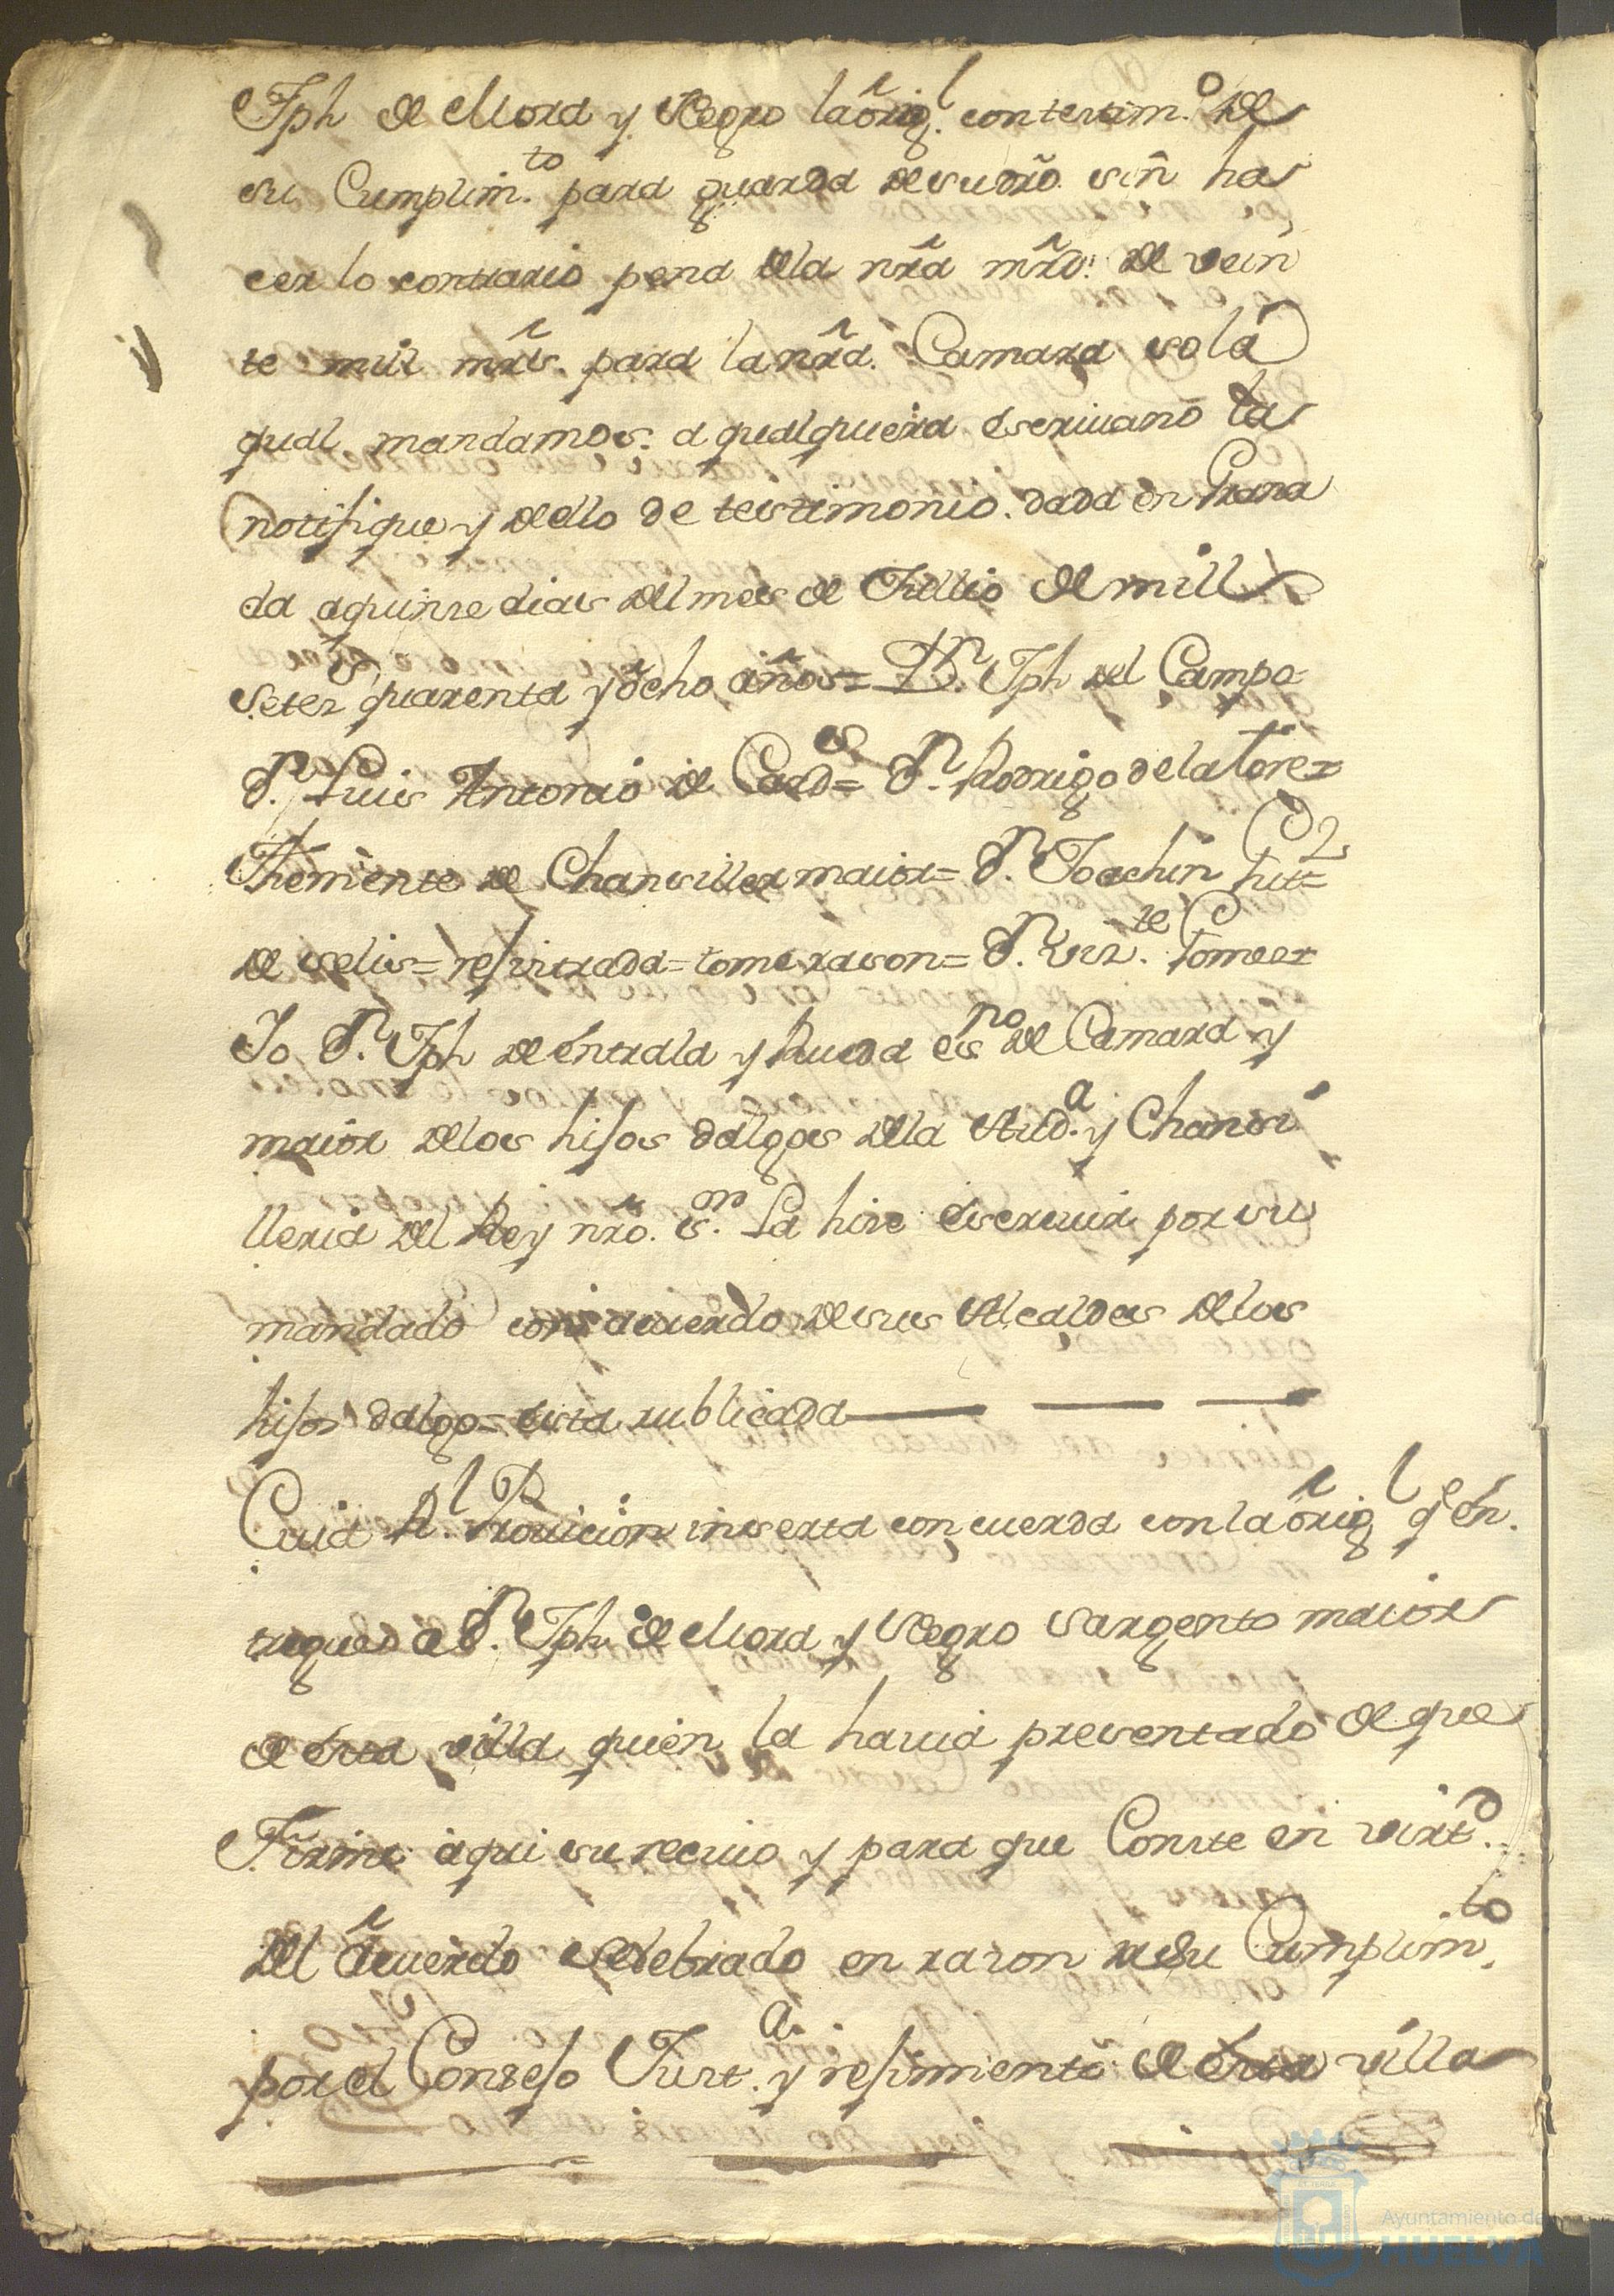 Jph de Mora y Negro la orig.l con testim.o de
su Cumplim.to para guarda de su dro. sin ha
cer lo contrario pena dela nrã mrd. de vein
te mill mrs. para la nrã. Camara so la
qual mandamos. a qualquiera escriuano la
notifique y dello de testimonio. dada en Grana
da a quinse dias del mes de Jullio de mill
setez.s quarenta y ocho años = D.n Jph del Campo =
D.n Luis Antonio de Card.s = D.n Rodrigo de la Torre =
Theniente de Chansiller maior = D.n Joachin
de Solis = resistrada = tome rason = D.n Viz.te Gomes =
Yo D.n Jph de entrala y Rueda es.no de Camara y
maior delos hijos dalgos dela Aud.a y Chansi
lleria del Rey nrõ. s.or La hise escriuir por su
mandado con acuerdo de sus Alcaldes delos
hijos dalgo = esta rublicada
Cuia R.l Prouicion inserta concuerda con la orig.l q.e en.
tregue a D.n Jph de Mora y Negro Sargento maior
de esta villa quien la hauia presentado de que
Firmo aqui su reciuo y para que Conste en virt.d
del acuerdo selebrado en razon de su Cumplim.to
por el Consejo Just.a y resimiento de esta villa
Ayuntamiento de
HUELVA